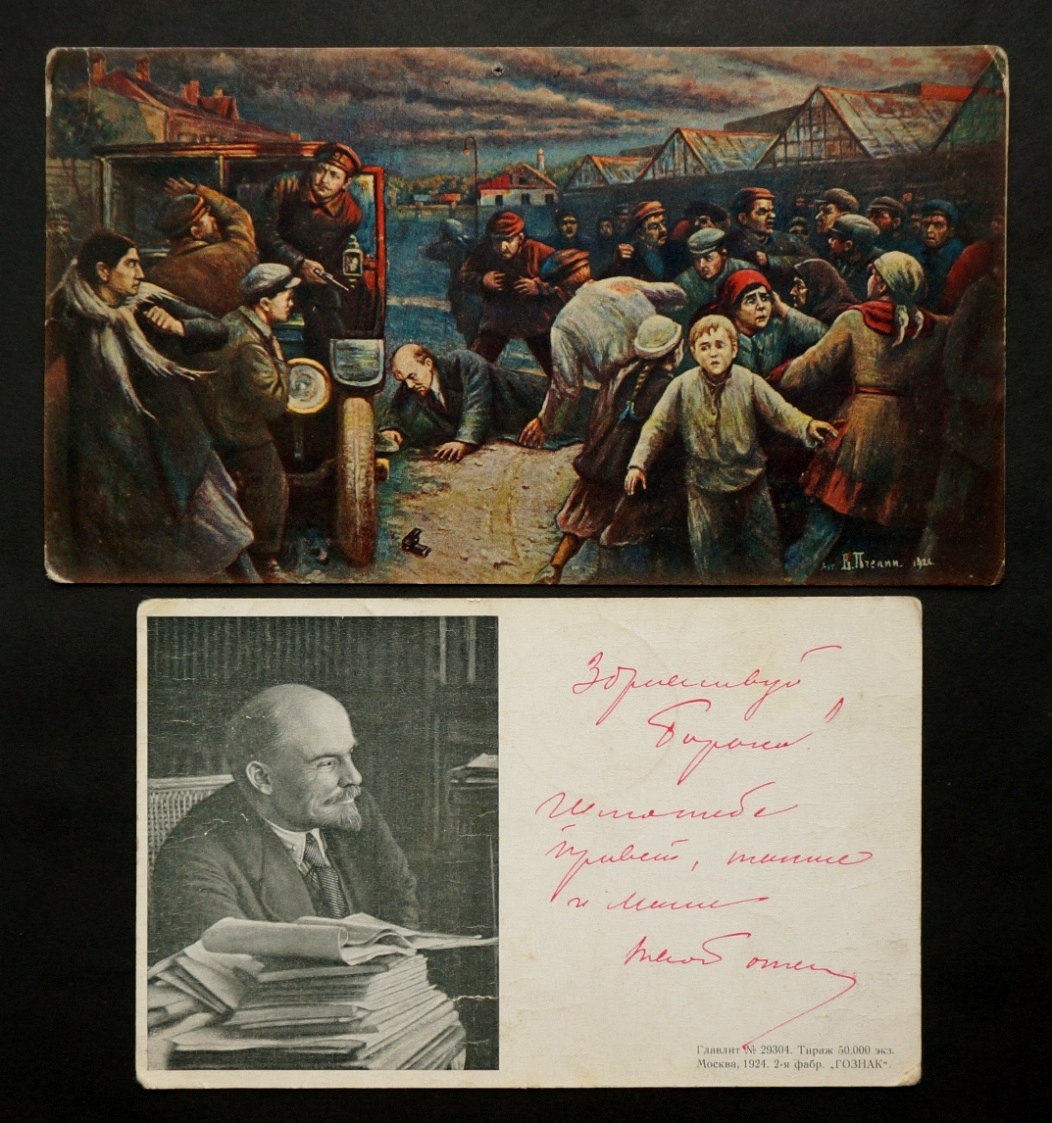 Худ. В. Пчелин.
Здравствуй
Шлю тебе
привет, также
и Маше
твой отец
Главлит № 29304. Тираж 50.000 экз.
Москва, 1924. 2-я фабр. „ГОЗНАК“.